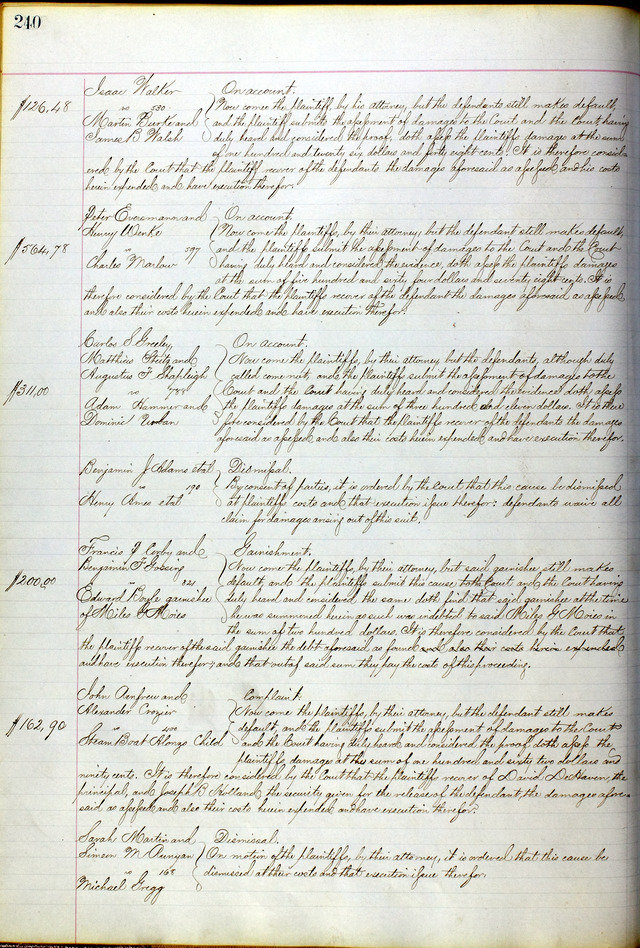 240
Isaac Walker On account.
$126,48 vs 530 Now comes the plaintiff, by his attorney, but the defendants still makes default,
Martin Burke and and the plaintiff submits the assessment of damages to the Court and the Court having
James B Walsh duly heard and considered the proof, doth assess the plaintiffs damage at the sum
of one hundred and twenty six dollars and forty eight cents. It is therefore consid-
ered by the Court that the plaintiff recover of the defendants the damages aforesaid as assessed, and his costs
herein expended and have execution therefor.
Peter Eversmann and On account.
Henry Wenke Now come the plaintiffs, by their attorney, but the defendant still makes default,
$564,78 " 797 and the plaintiffs submit the assessment of damages to the Court and the Court
Charles Marlow having duly heard and considered the evidence, doth assess the plaintiffs damages
at the sum of five hundred and sixty four dollars and seventy eight cents. It is
therefore considered by the Court that the plaintiffs recover of the defendant the damages aforesaid as assessed,
and also their costs herein expended and have execution therefor.
Carlos S Greeley, On account.
Matthias and Now come the plaintiffs, by their attorney but the defendants, although duly
Augustus F Shapleigh called come not, and the plaintiffs submit the assessment of damages to the
$311,00 vs 788 Court and the Court having duly heard and considered the evidence doth assess
Adam Hammer and the plaintiffs damages at the sum of three hundred and eleven dollars. It is there
Dominic Urban fore considered by the Court that the plaintiffs recover of the defendants the damages
aforesaid as assessed and also their costs herein expended and have execution therefor.
Benjamin J Adams et al Dismissal.
" 190 By consent of parties, it is ordered by the Court that this cause be dismissed
Henry Ames et al at plaintiffs costs and that execution issue therefor: defendants waive all
claim for damages arising out of this suit.
Francis J Corby and Garnishment.
Benjamin F Gossing Now come the plaintiffs, by their attorney, but said garnishee still makes
$200,00 " 821 default, and the plaintiffs submit this cause to the Court and the Court having
Edward Boyle garnishee duly heard and considered the same doth find that said garnishee at the time
of Miles G Moies he was summoned herein as such was indebted to said Miles G Moies in
the sum of two hundred dollars. It is therefore considered by the Court that
the plaintiffs recover of the said garnishee the debt aforesaid as found and also their costs herein expended
and have execution therefor; and that out of said sum they pay the cost of this proceeding.
John Renfrew and Complaint
Alexander Crozier Now come the plaintiffs, by their attorney, but the defendant still makes
$162,90 " 400 default, and the plaintiffs submit the assessment of damages to the Court
Steam Boat Alonzo Child and the Court having duly heard and considered the proof doth assess the
plaintiffs, damages at the sum of one hundred and sixty two dollars and
ninety cents. It is therefore considered by the Court that the plaintiffs recover of David DeHaven, the
principal, and Joseph B Holland the security given for the release of the defendant, the damages afore-
said as assessed and also their costs herein expended and have execution therefor.
Sarah Martin and Dismissal.
Simeon M Runyan On motion of the plaintiffs, by their attorney, it is ordered that this cause be
" 168 dismissed at their costs and that execution issue therefor.
Michael Gregg